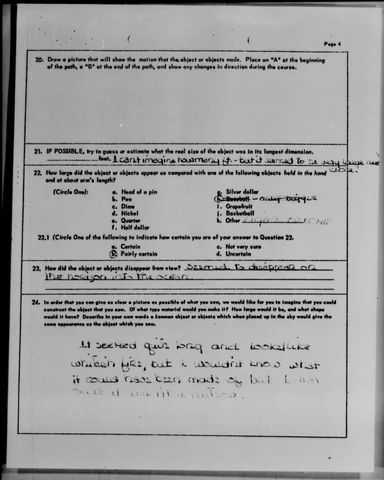 Page 4
20. Draw a picture that will show the motion that the object or objects made. Place an "A" at the beginning
of the path, a "B" at the end of the path, and show any changes in direction during the course.
21. IF POSSIBLE, try to guess or estimate what the real size of the object was in its longest dimension.
feet. I can't imagine how many ft. - but it seemed to be very large and
22. How large did the object or objects appear as compared with one of the following objects held in the hand
and at about arm's length?
(Circle One): a. Head of a pin g. Silver dollar
b. Pea h. Baseball - only bigger
c. Dime i. Grapefruit
d. Nickel j. Basketball
e. Quarter k. Other
f. Half dollar
22.1 (Circle One of the following to indicate how certain you are of your answer to Question 22.
a. Certain c. Not very sure
b. Fairly certain d. Uncertain
23. How did the object or objects disappear from view? Seemed to disappear on
the horizon into the ocean
24. In order that you can give as clear a picture as possible of what you saw, we would like for you to imagine that you could
construct the object that you saw. Of what type material would you make it? How large would it be, and what shape
would it have? Describe in your own words a common object or objects which when placed up in the sky would give the
same appearance as the object which you saw.
It seemed quite long and looked like
fire, but i wouldn't know what
it could have been made of but I am